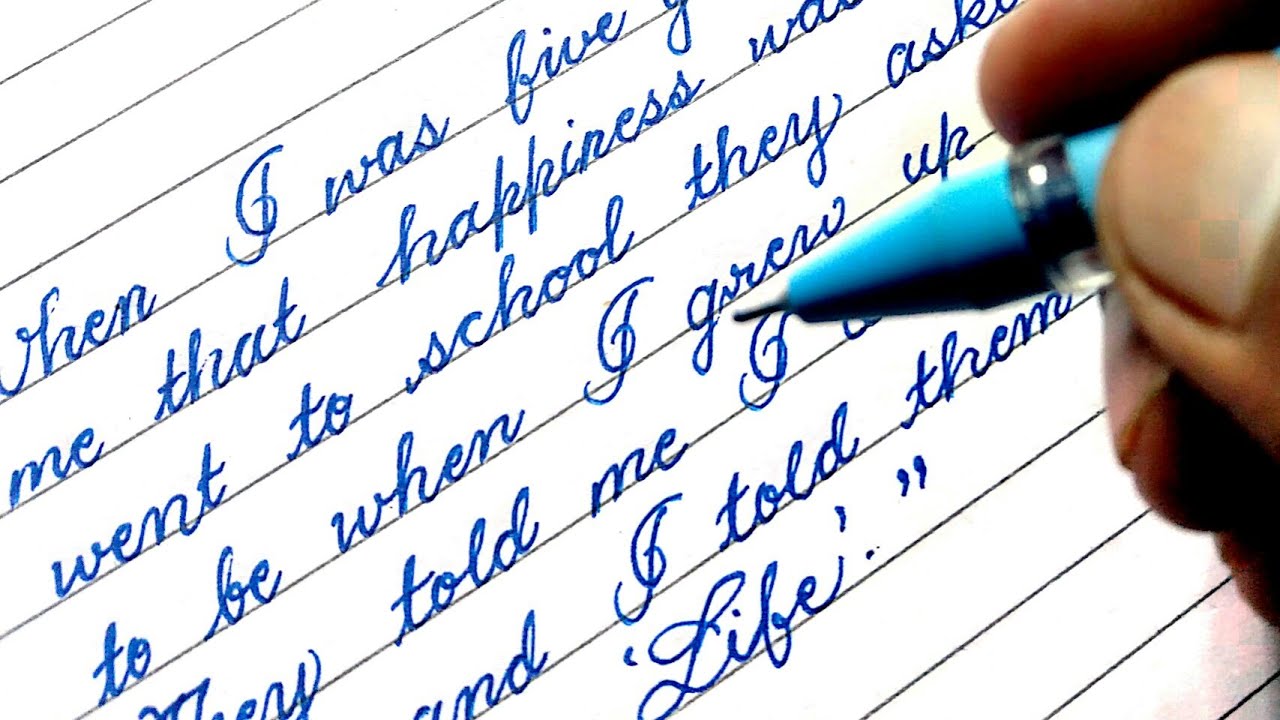 when I was five y
me that happiness was
went to school they aske
to be when I grew up
They told me I
and I told them
'Life'."